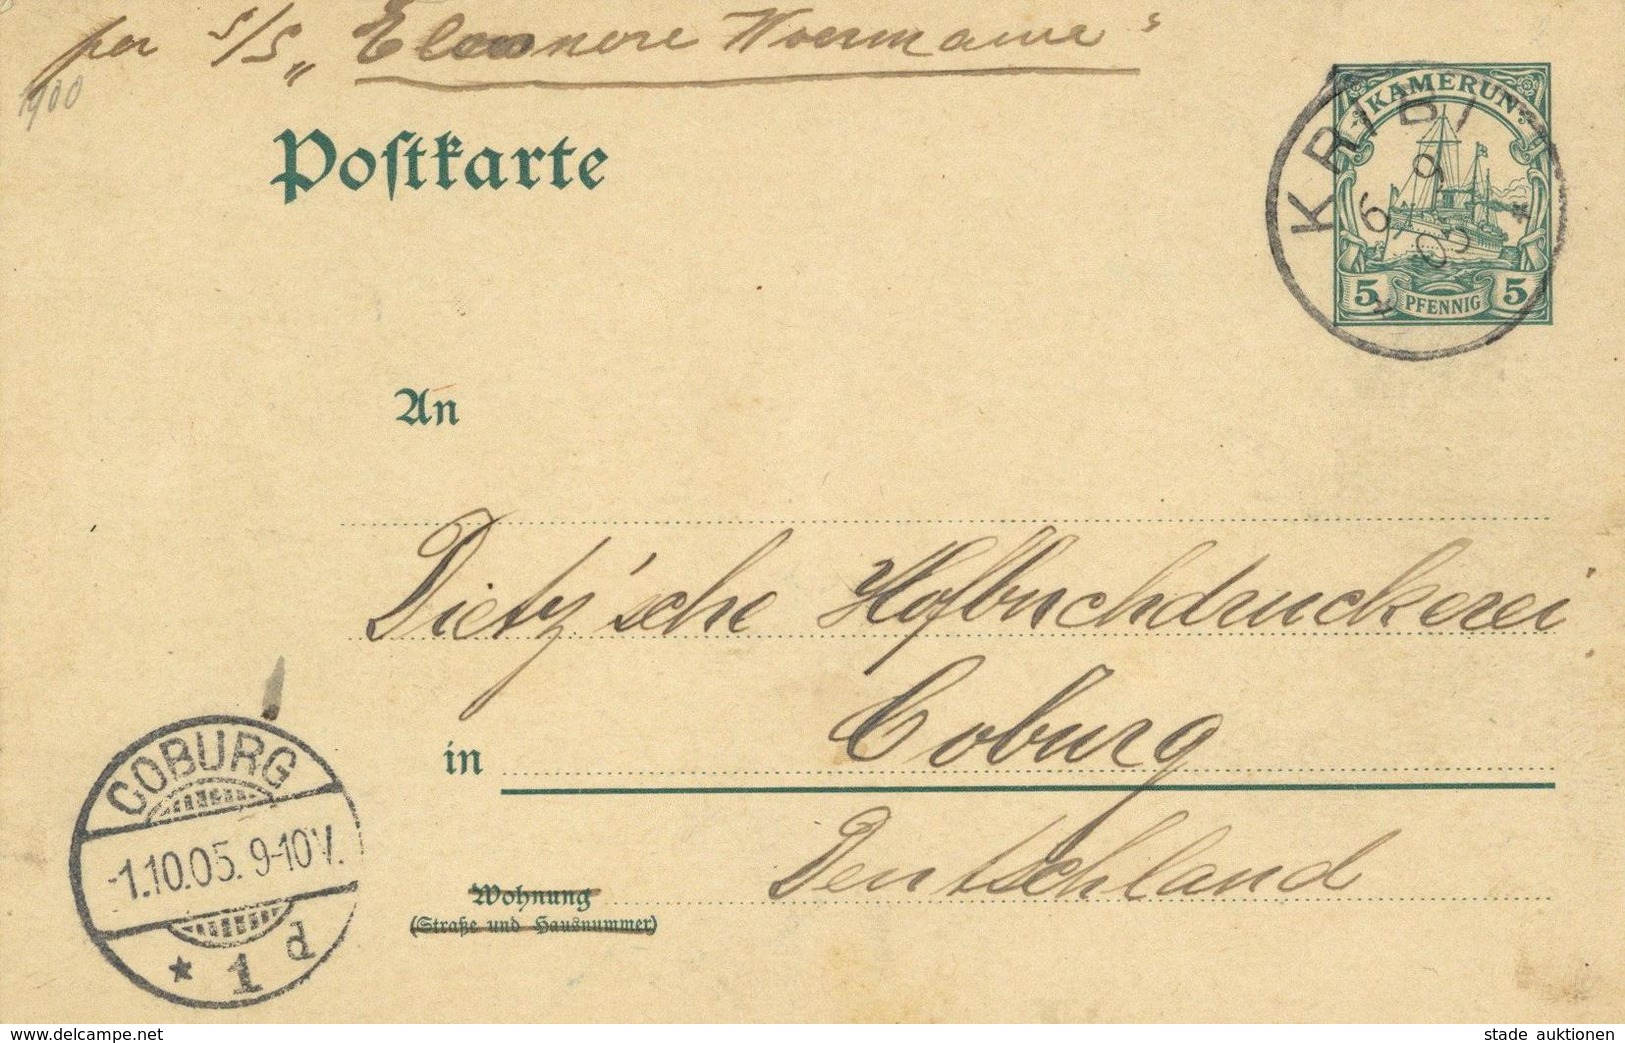 per S/S „Eleonore Woermann"
1900
Postkarte
KAMERUN
KRIBI
6 9
05
5 PFENNIG 5
An
Dietz'sche Hofbuchdruckerei
in Coburg
COBURG
-1.10.05. 9-10V.
* 1 d
Deutschland
Wohnung
(Straße und Hausnummer)
www.delcampe.net
stade auktionen